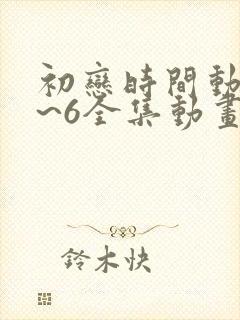 初戀時間動
~6全集動畫
鈴木快